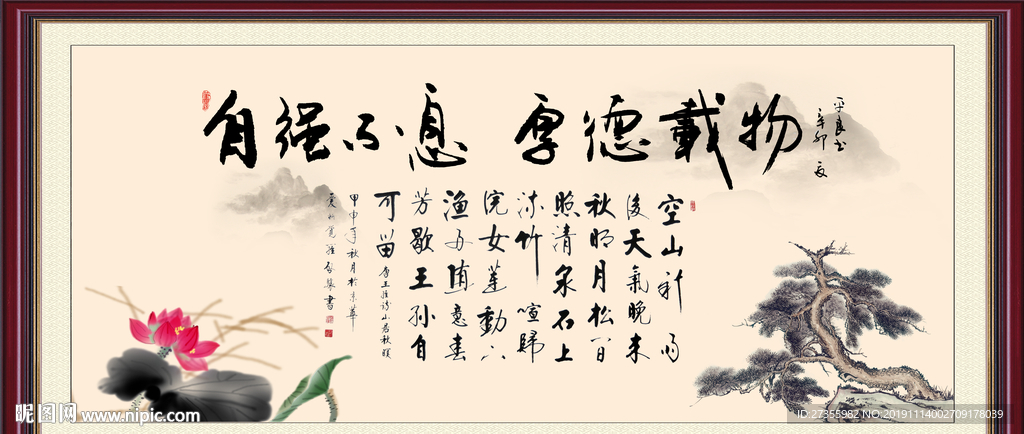 自强不息 厚德載物
平良书
辛卯 夏
空山新雨
後天氣晚来
秋明月松间
照清泉石上
流竹喧歸
浣女莲動下
渔舟随意春
芳歇王孙自
可留 唐王维诗山居秋暝
甲申年秋月於京華
書
昵图网 www.nipic.com
ID:27355982 NO:20191114002709178039